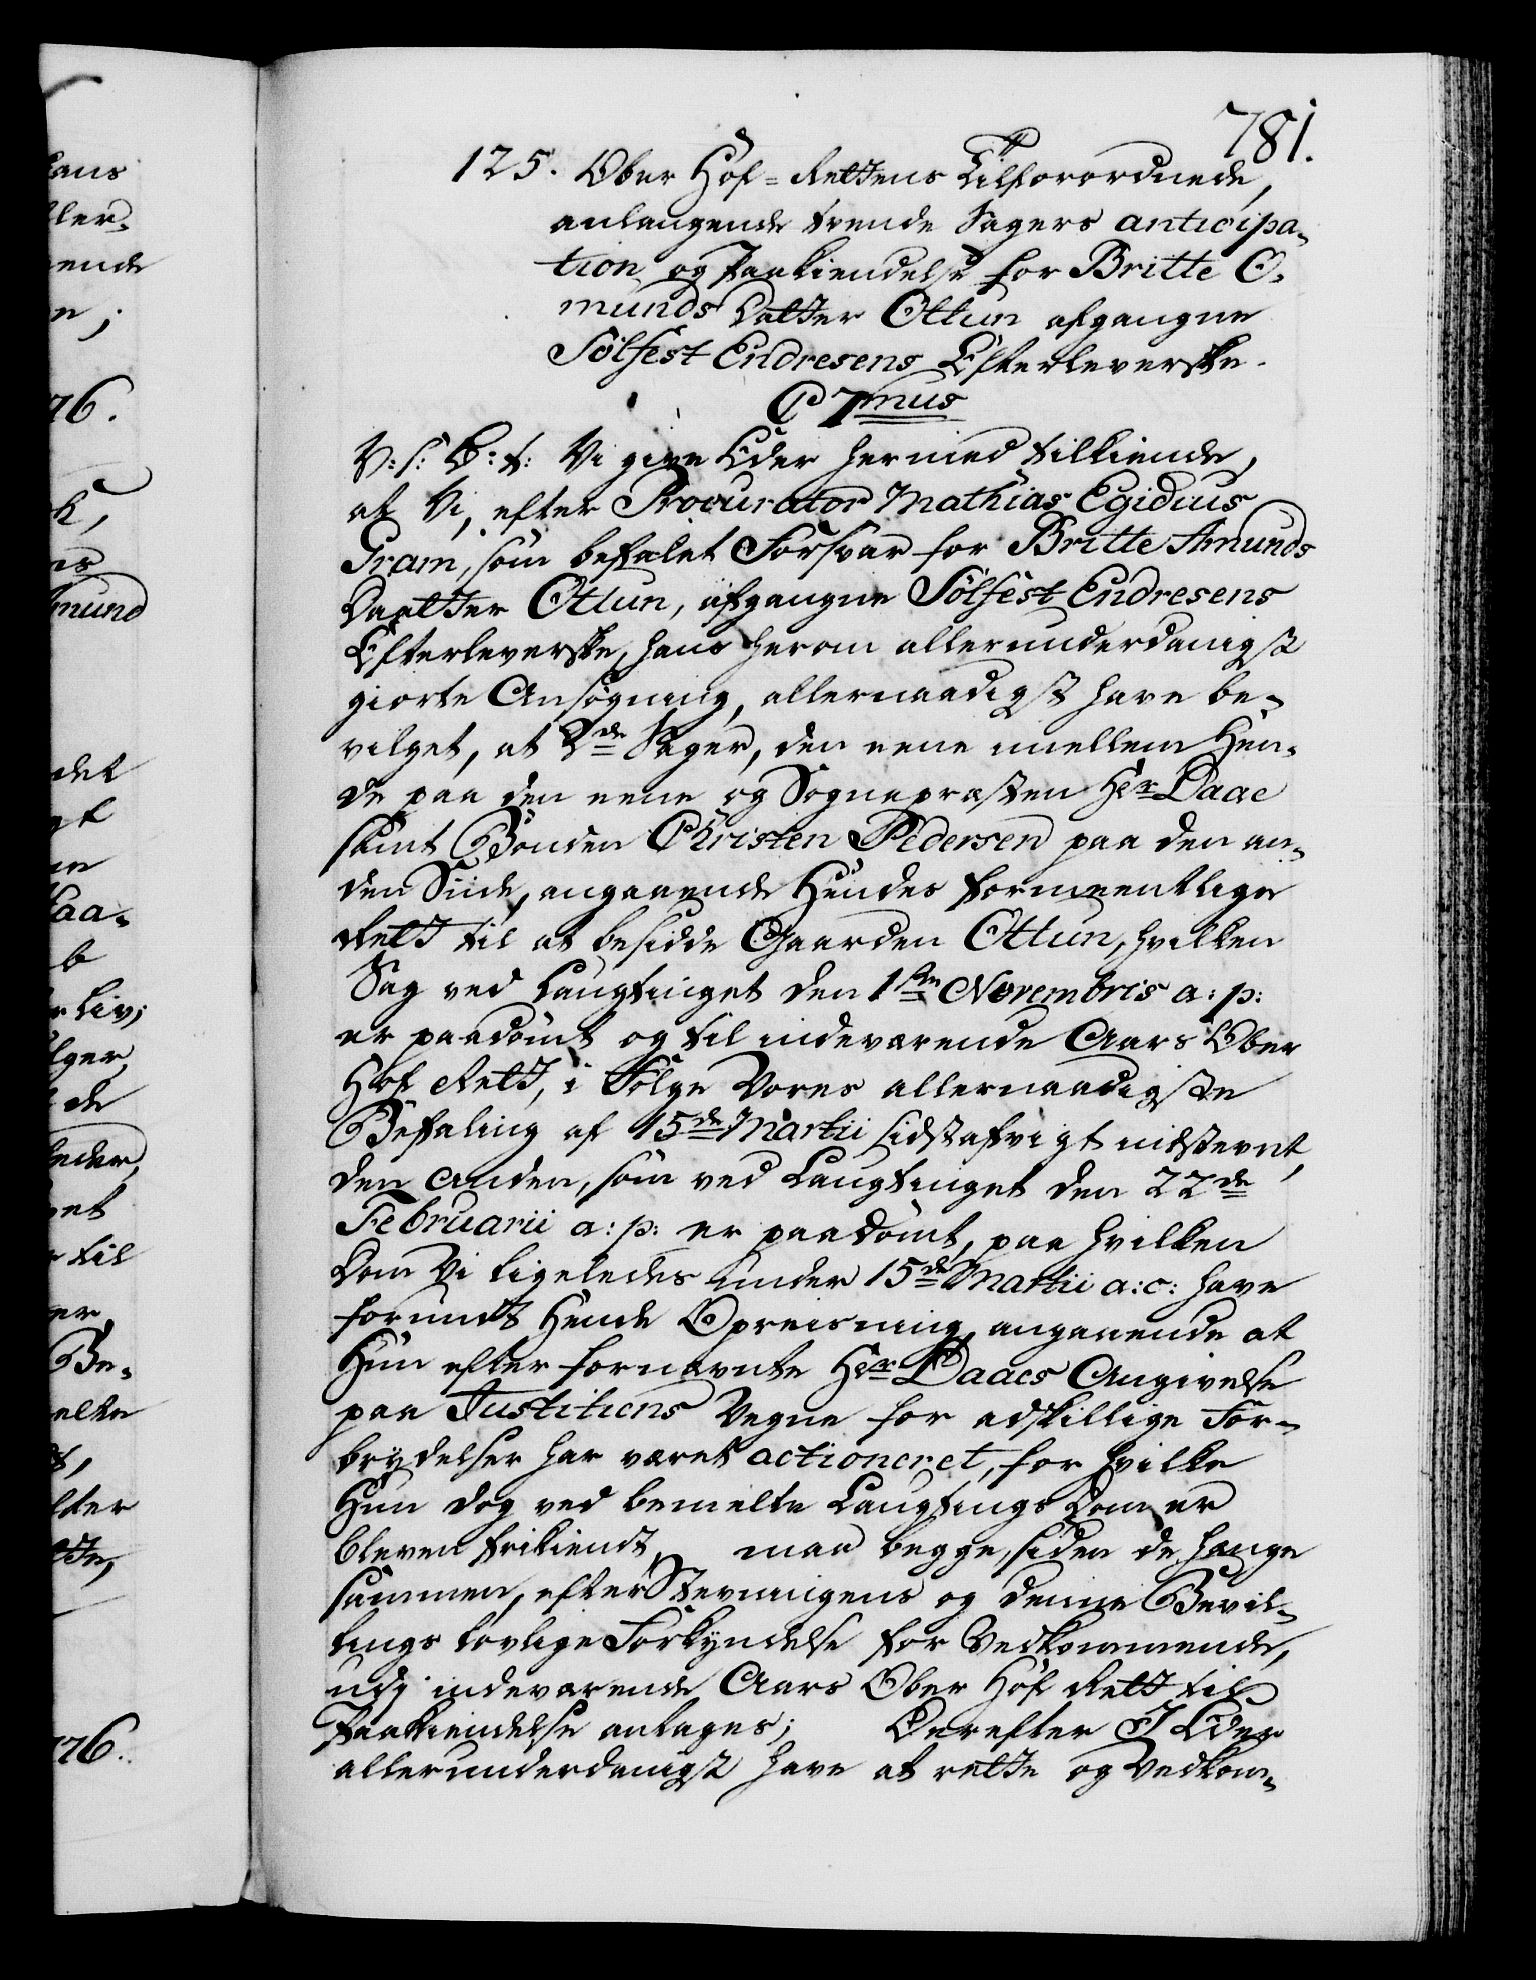 781.
125. Ober Hof-Rettens Tilforordnede,
anlangende tvende Sagers anticipa-
tion og Paakiendelse for Britte O-
munds Datter Ottun afgangne
Sölfest Endresens Efterleverske.
C 7mus
V: s: G: t: Vi give Eder hermed tilkiende,
at Vi, efter Procurator Mathias Egidius
Gram, som befalet Forsvar for Britte Amunds
Daatter Ottun, afgangne Sölfest Endresens
Efterleverske, hans herom allerunderdanigst
giorte Ansøgning, allernaadigst have be-
vilget, at 2de Sager, den eene imellem Hen-
de paa den eene og Sognepræsten Hr. Daae
samt Bonden Christen Pedersen paa den an-
den Siide, angaaende Hendes formeentlige
Rett til at besidde Gaarden Ottun, hvilken
Sag ved Laugtinget den 1ste Novembris a: p:
er paadömt og til indeværende Aars Ober
Hof Rett, i Følge Vores allernaadigste
Befaling af 15de Martii sidstafvigt indstevnt,
den Anden, som ved Laugtinget den 22de
Februarii a: p: er paadömt, paa hvilken
Dom Vi ligeledes under 15de Martii a: c: have
forundt Hende Opreisning, angaaende at
Hun efter fornævnte Hr. Daaes Angivelse
paa Justitiens Vegne for adskillige For-
brydelser har været actioneret, for hvilke
Hun dog ved bemelte Laugtings Dom er
bleven frikiendt, maa begge, siden de hænge
sammen, efter Stevningens og denne Bevil-
lings lovlige Forkyndelse for Vedkommende,
udj indeværende Aars Ober Hof Rett til
Paakiendelse antages; Derefter I Eder
allerunderdanigst have at rette og Vedkom-